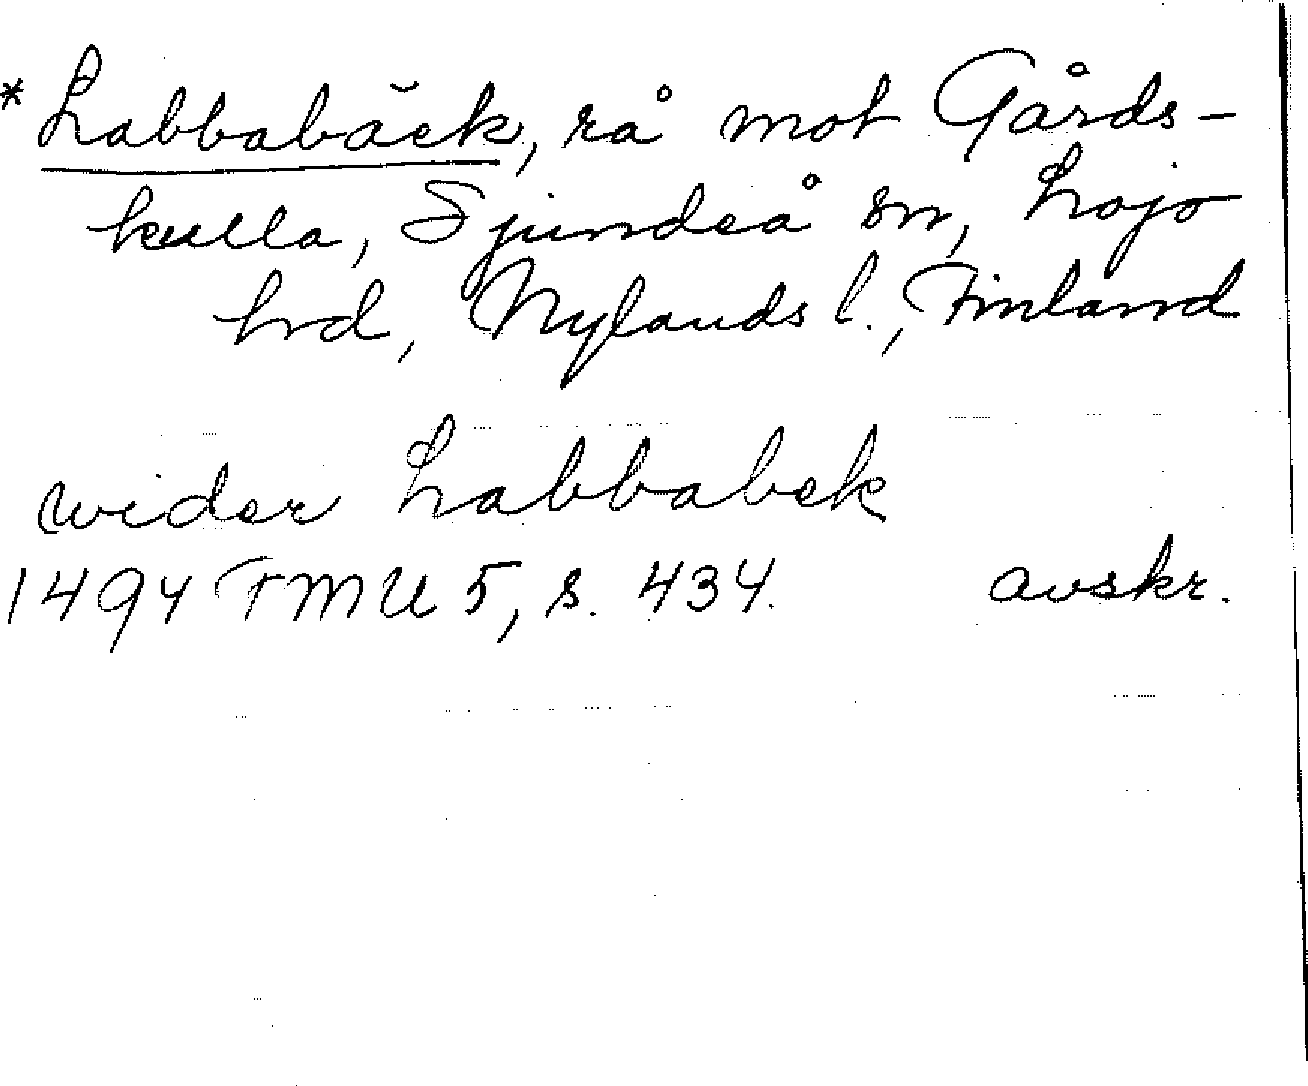 *Labbabäck, rå mot Gårds-
kulla, Sjundeå sn, Lojo
hrd, Nylands l., Finland
wider Labbabek
1494 FMU 5, s. 434. avskr.